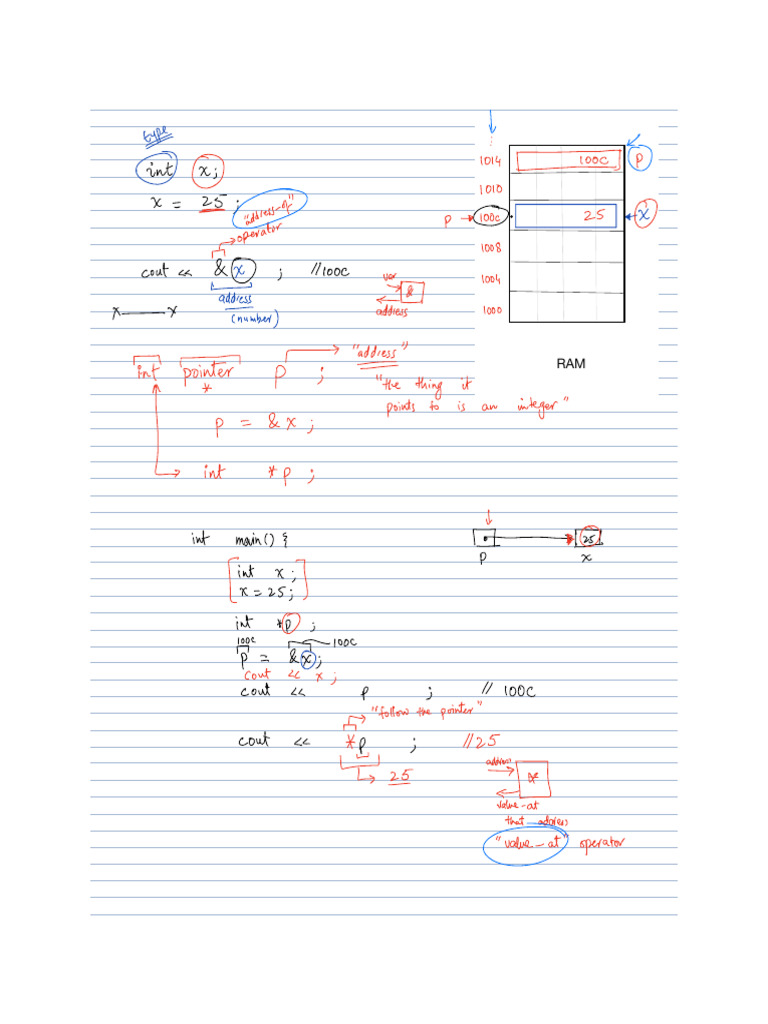 type
int x;
x = 25;
"address-of"
operator
cout << &x ; //100C
address
(number)
var
&
address
x——x
1014 100C p
1010
p → 100c 25 x
1008
1004
1000
RAM
int pointer p ; "address"
*
"the thing it
points to is an integer"
p = &x;
int *p;
int main() {
int x;
x = 25;
25
p x
int *p ;
100c 100C
p = &x;
cout << x;
cout << p ; // 100C
"follow the pointer"
cout << *p ; //25
25
address
*
value-at
that address
"value-at" operator